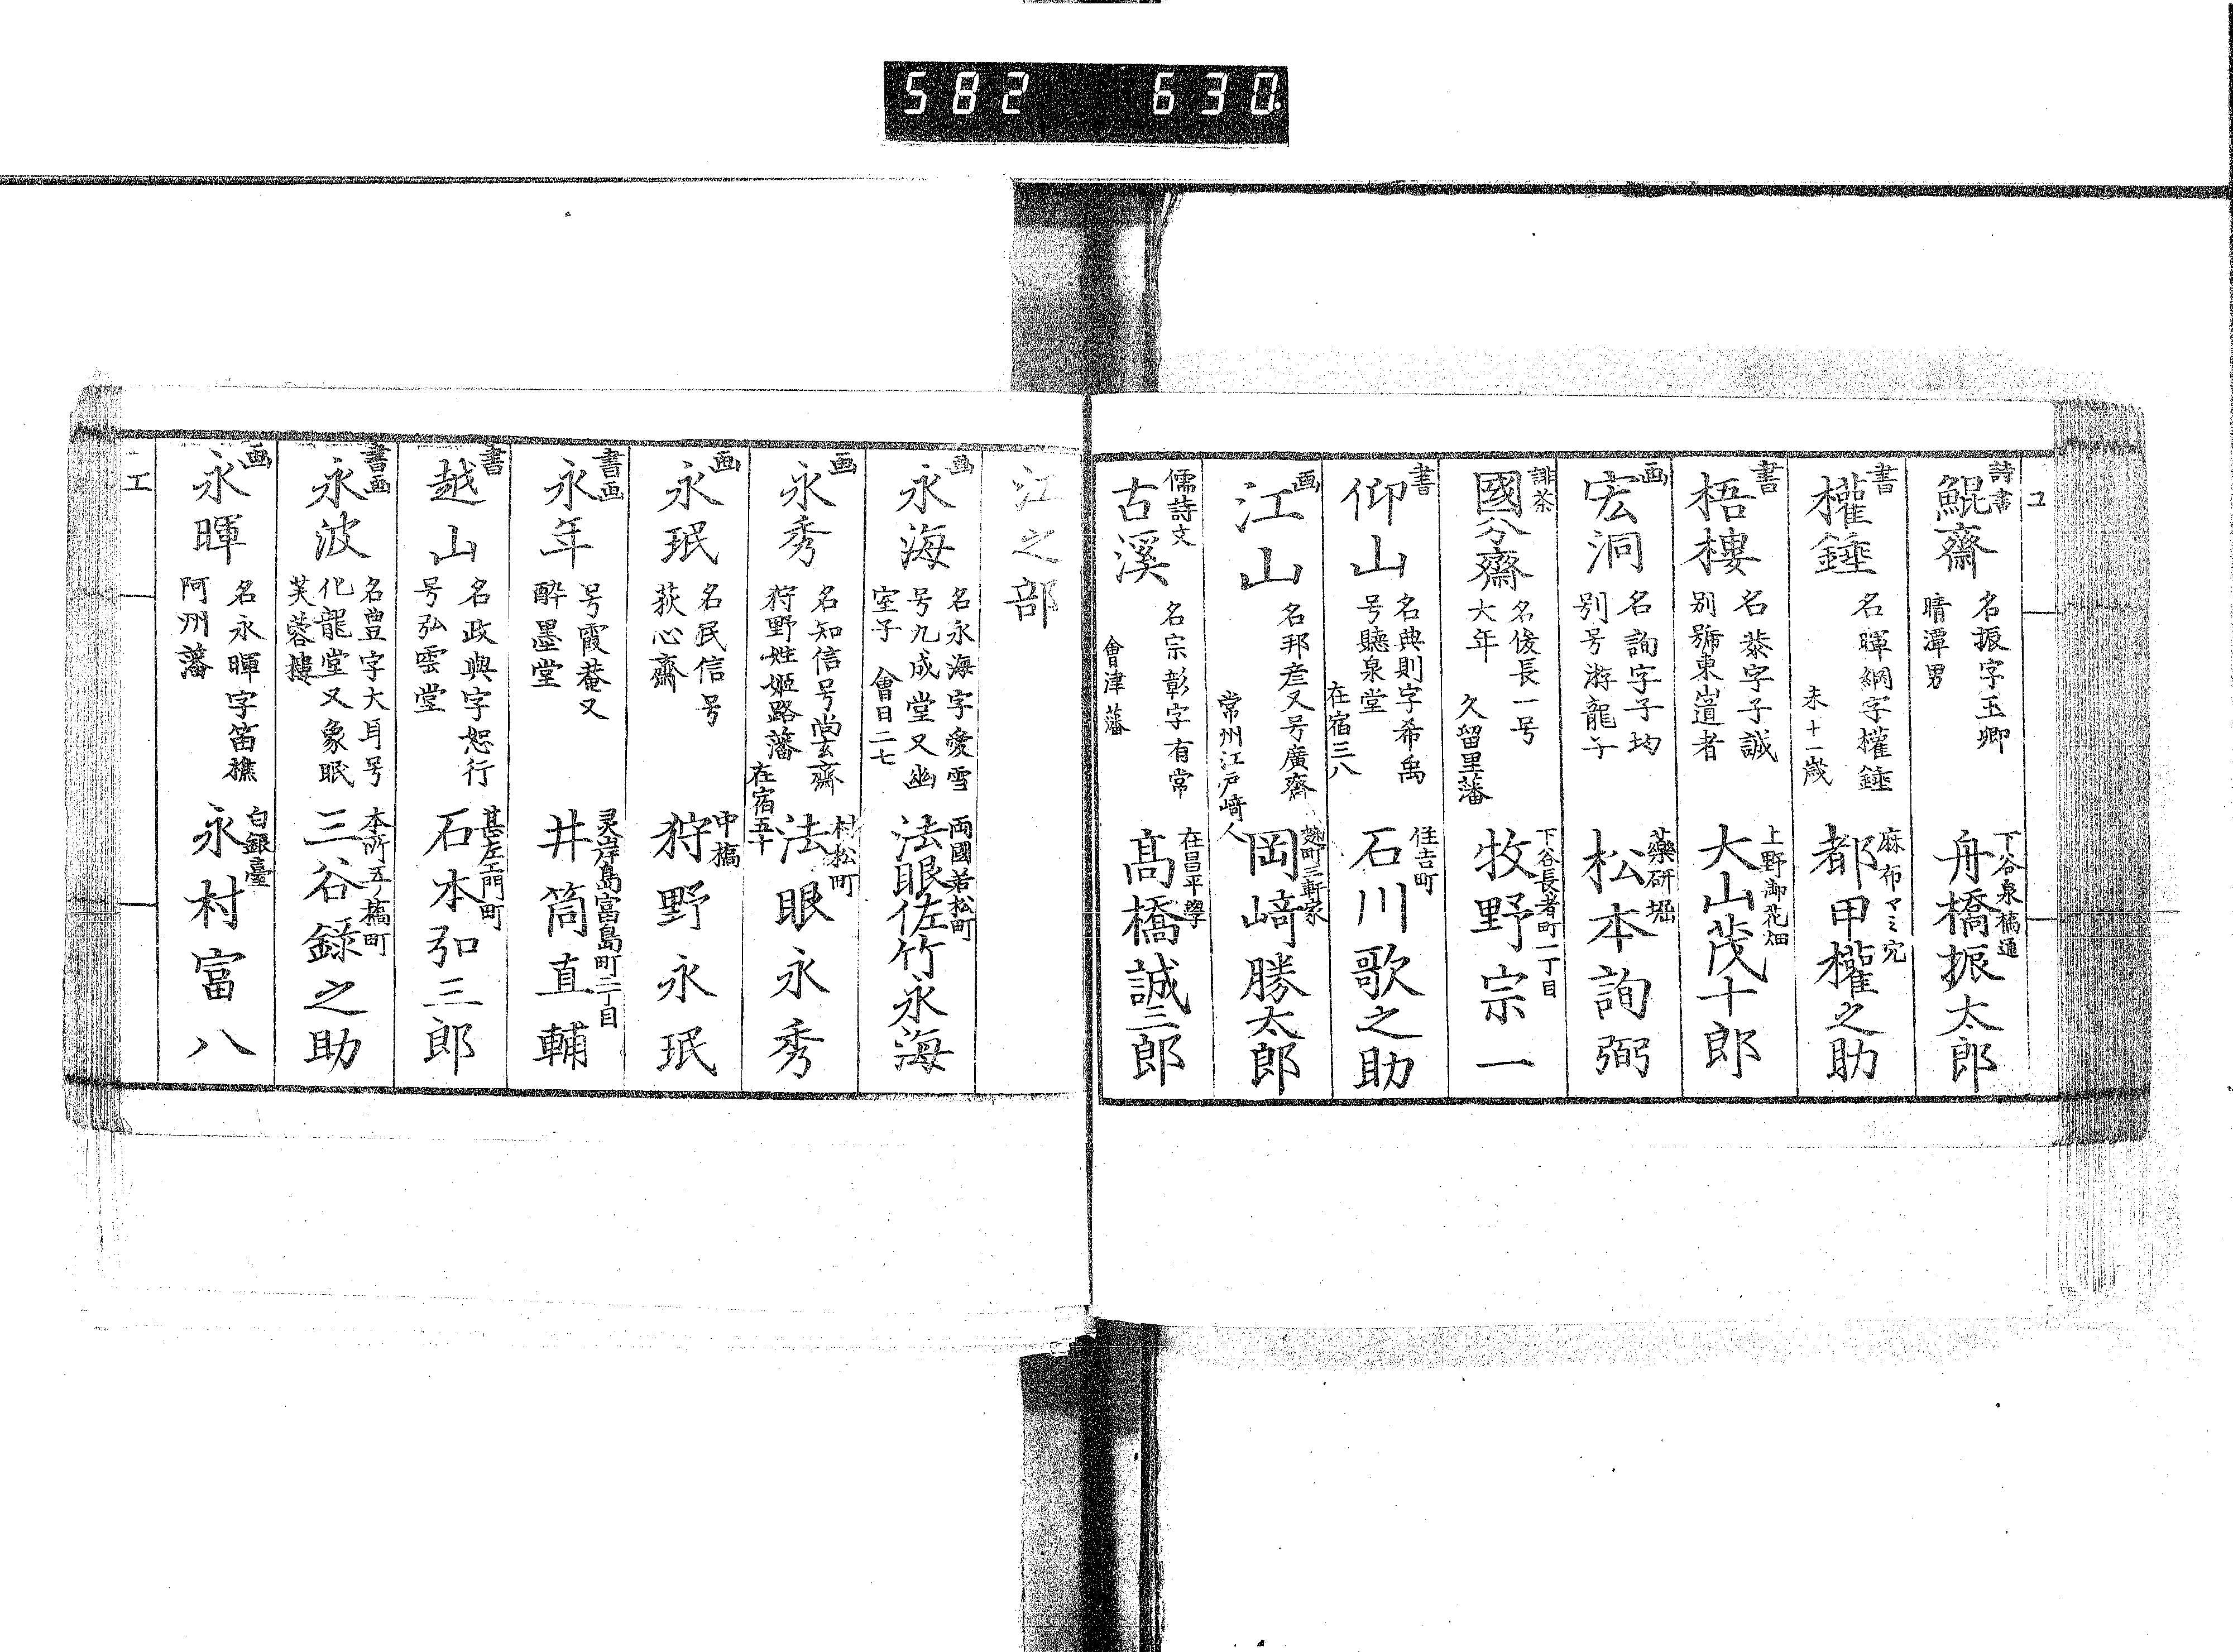 582 630.
コ
詩書
鯤齋
名振字玉卿
晴潭男
下谷泉橋通
舟橋振太郎
書
權錘
名暉綱字權錘
未十一歳
麻布マミ穴
都甲權之助
書
梧樓
名恭字子誠
別號東嶺道者
上野御花畑
大山茂十郎
画
宏洞
名詢字子均
別号游龍子
藥研堀
松本詢弼
誹茶
國分齋
名俊長一号
大年
久留里藩
下谷長者町一丁目
牧野宗一
書
仰山
名典則字希禹
号聴泉堂
在宿三八
住吉町
石川歌之助
画
江山
名邦彦又号廣齋
常州江戸﨑人
麹町三軒家
岡﨑勝太郎
儒詩文
古溪
名宗彰字有常
會津藩
在昌平學
髙橋誠三郎
江之部
画
永海
名永海字愛雪
号九成堂又幽
室子 會日二七
両國若松町
法眼佐竹永海
画
永秀
名知信号尚玄齋
狩野姓姫路藩
在宿五十
村松町
法眼永秀
画
永珉
名民信号
荻心齋
中橋
狩野永珉
書画
永年
号霞菴又
酔墨堂
灵岸島富島町二丁目
井筒直輔
書
越山
名政與字恕行
号弘雲堂
甚左エ門町
石本弘三郎
書画
永波
名豊字大耳号
化龍堂又象眠
芙蓉樓
本所五ノ橋町
三谷録之助
画
永暉
名永暉字笛樵
阿州藩
白銀臺
永村富八
エ